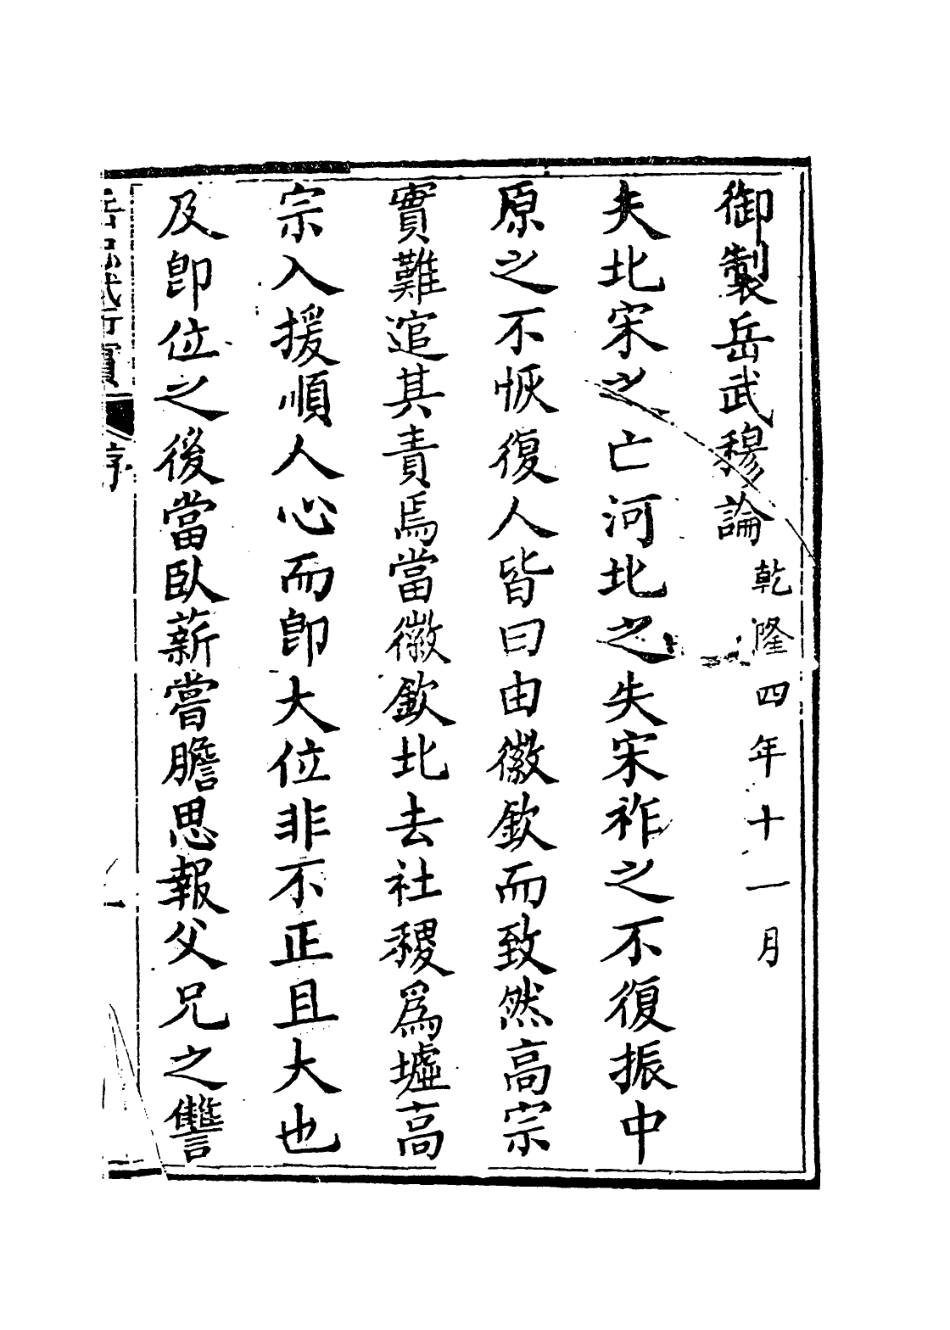 御製岳武穆論乾隆四年十一月
夫北宋之亡河北之失宋祚之不復振中
原之不恢復人皆曰由徽欽而致然高宗
實難逭其責焉當徽欽北去社稷爲墟高
宗入援順人心而卽大位非不正且大也
及卽位之後當臥薪嘗膽思報父兄之讐
序